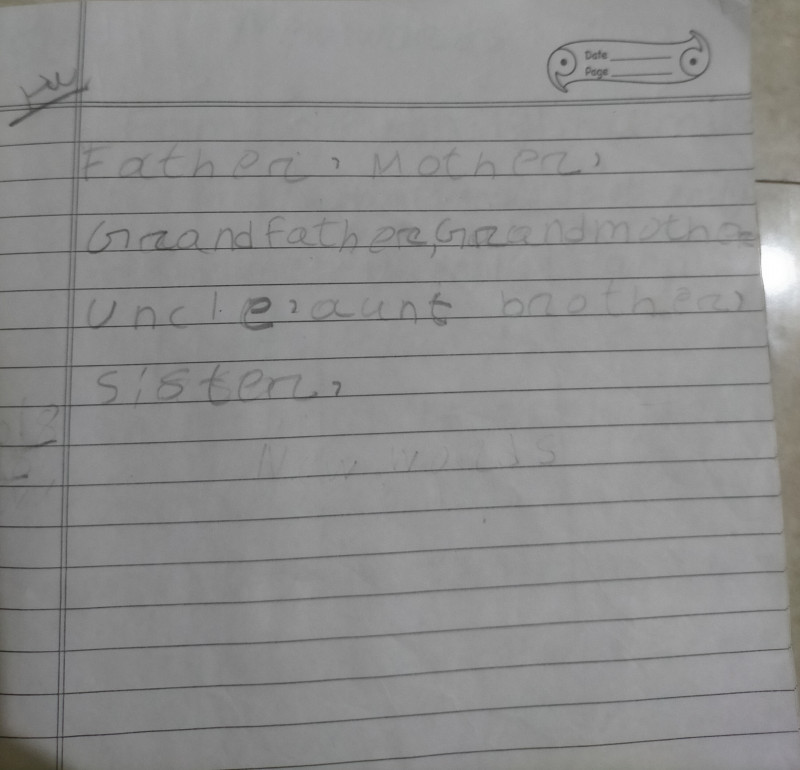 Date
Page
Father, Mother,
Grandfather, Grandmothe
Uncle, aunt brother,
Sister,